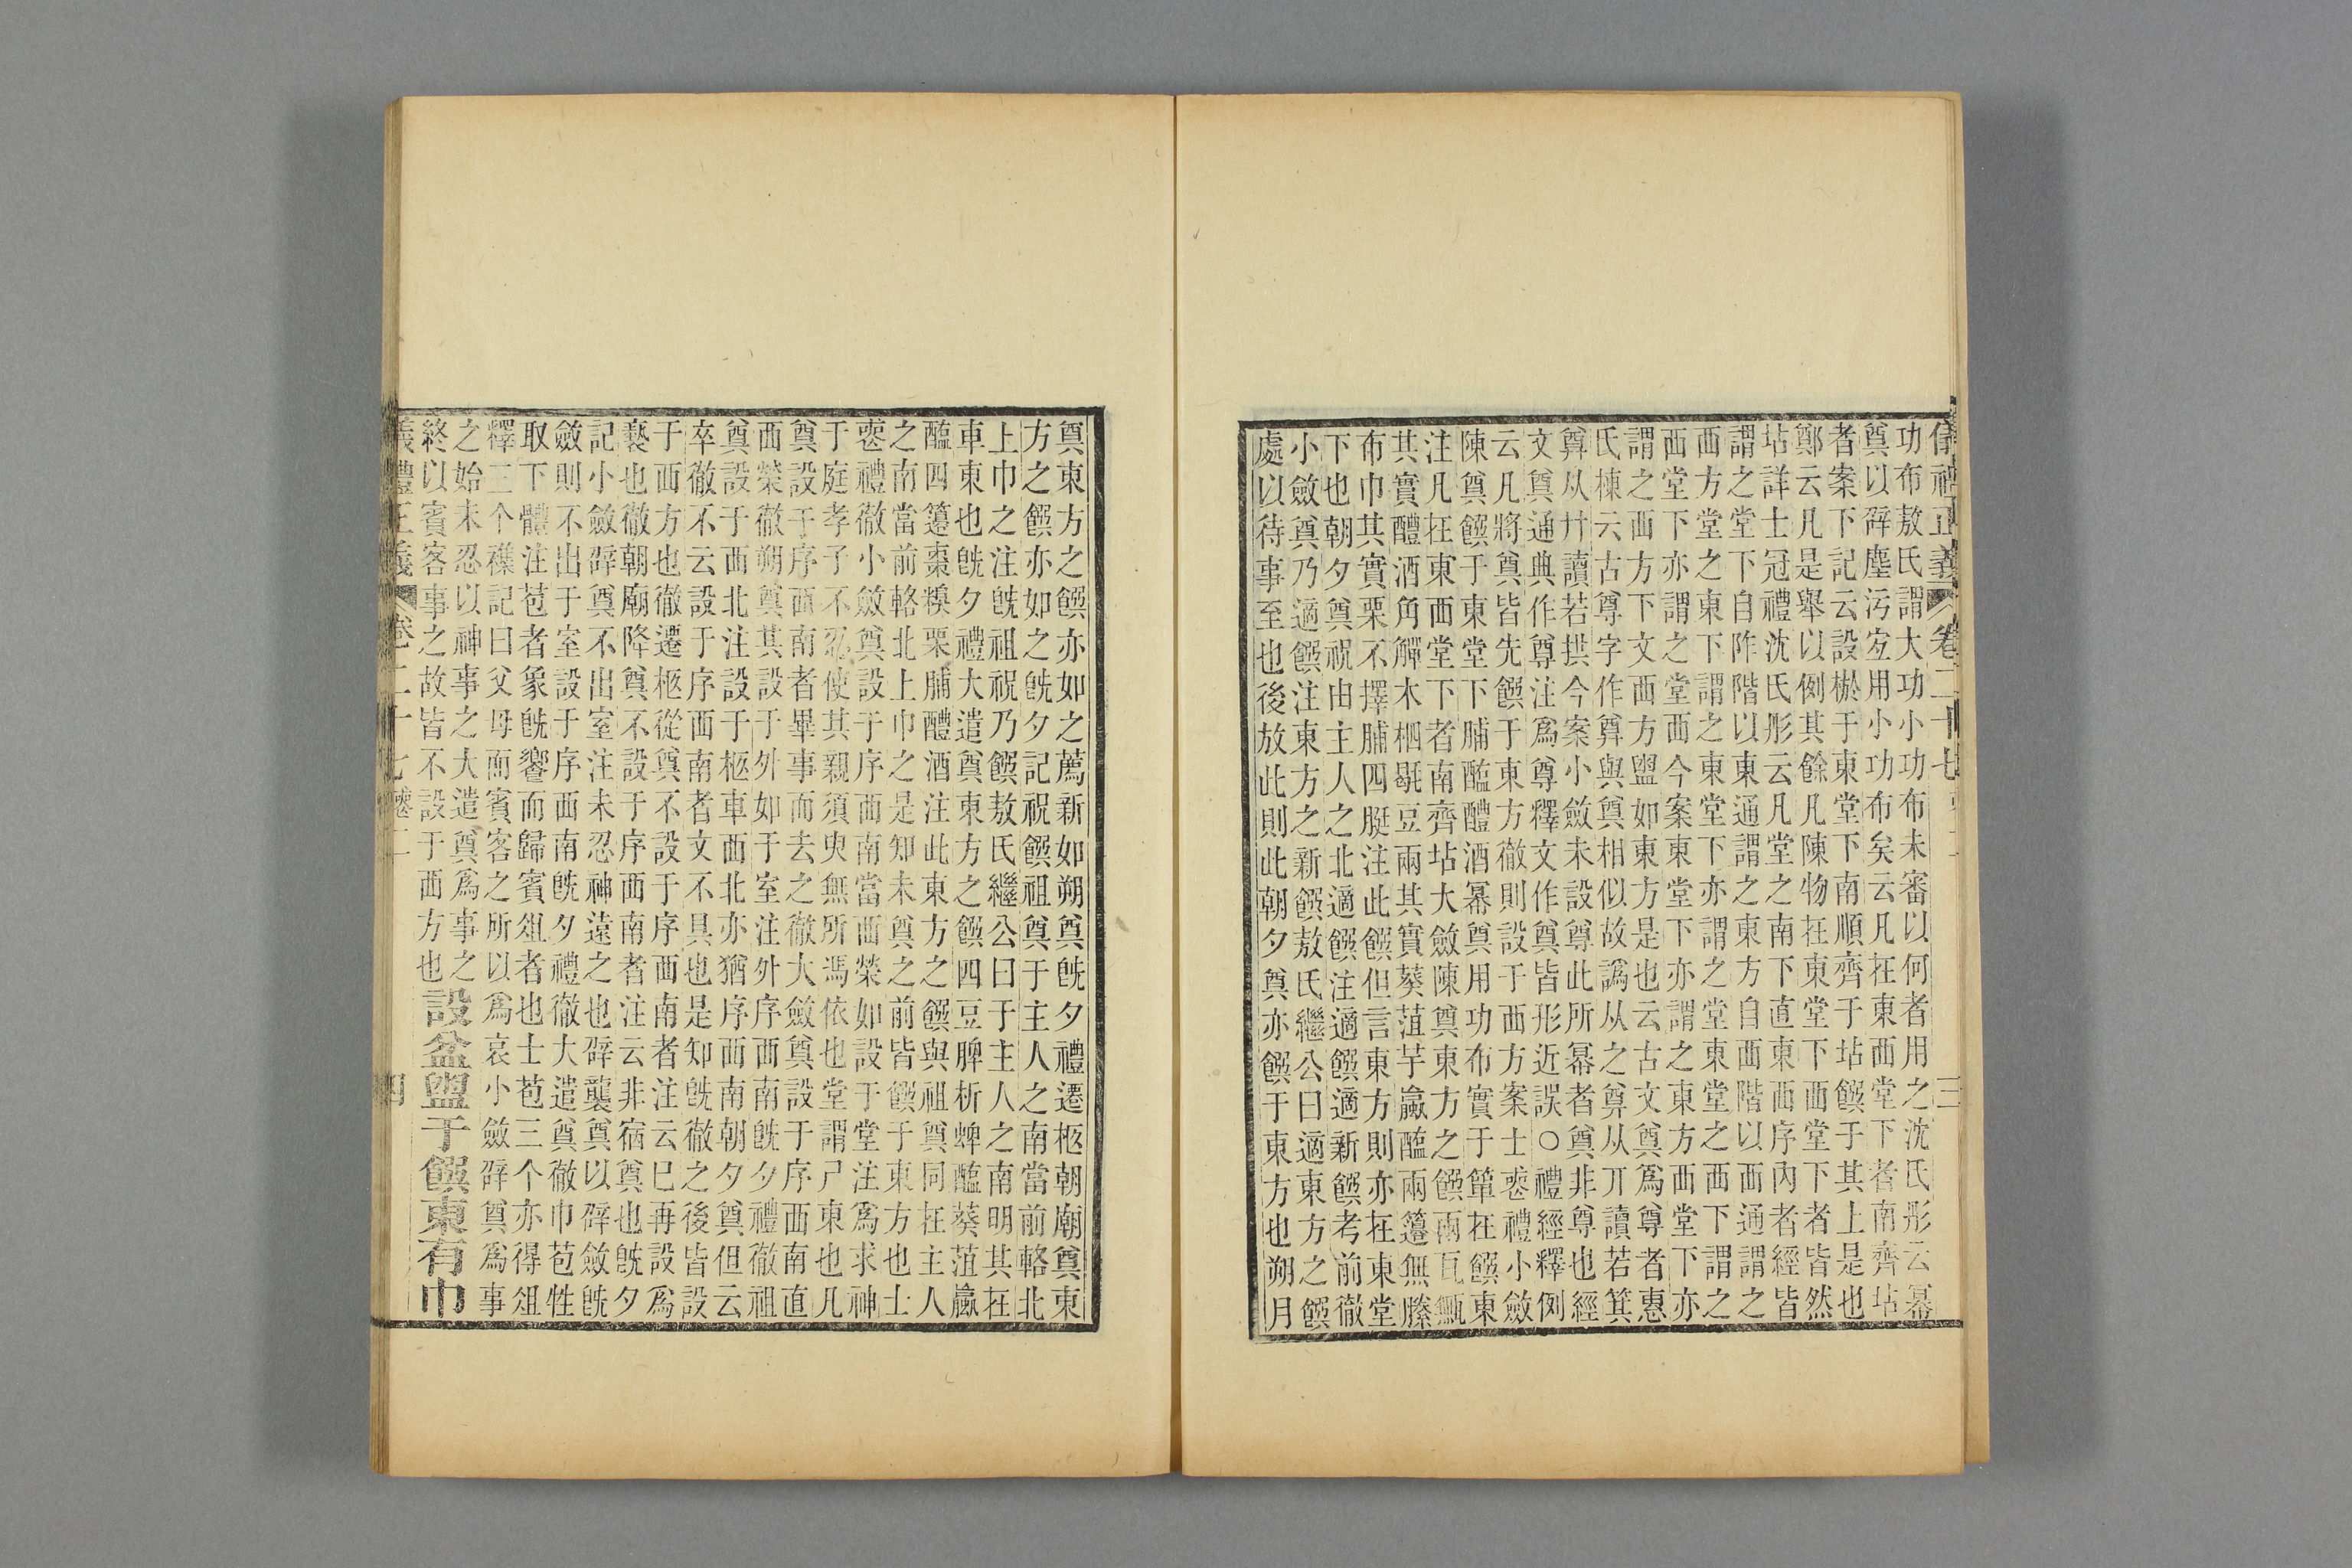 儀禮正義 卷二十七 三
功布敖氏謂大功小功布未審以何者用之沈氏彤云冪
奠以辟塵污宐用小功布矣云凡在東西堂下者南齊坫
者案下記云設棜于東堂下南順齊于坫饌于其上是也
鄭云凡是舉以例其餘凡陳物在東堂下西堂下者皆然
坫詳士冠禮沈氏彤云凡堂之南下直東西序內者經皆
謂之堂下自阼階以東通謂之東方自西階以西通謂之
西方堂之東下謂之東堂下亦謂之堂東堂之西下謂之
西堂下亦謂之堂西今案東堂下亦謂之東方西堂下亦
謂之西方下文西方盥如東方是也云古文奠爲尊者惠
氏棟云古尊字作尊與奠相似故譌从之尊从丌讀若箕
尊从廾讀若拱今案小斂未設尊此所冪者奠非尊也經
文奠通典作尊注爲尊釋文作奠皆形近誤○禮經釋例
云凡將奠皆先饌于東方徹則設于西方案士喪禮小斂
陳奠饌于東堂下脯醢醴酒冪奠用功布實于簞在饌東
注凡在東西堂下者南齊坫大斂陳奠東方之饌兩瓦甒
其實醴酒角觶木柶毼豆兩其實葵菹芋蠃醢兩籩無縢
布巾其實栗不擇脯四脡注此饌但言東方則亦在東堂
下也朝夕奠祝由主人之北適饌注適饌適新饌考前徹
小斂奠乃適饌注東方之新饌敖氏繼公曰適東方之饌
處以待事至也後放此則此朝夕奠亦饌于東方也朔月
奠東方之饌亦如之薦新如朔奠旣夕禮遷柩朝廟奠東
方之饌亦如之旣夕記祝饌祖奠于主人之南當前輅北
上巾之注旣祖祝乃饌敖氏繼公曰于主人之南明其在
車東也旣夕禮大遣奠東方之饌四豆脾析蜱醢葵菹蠃
醢四籩棗糗栗脯醴酒注此東方之饌與祖奠同在主人
之南當前輅北上巾之是知未奠之前皆饌于東方也士
喪禮徹小斂奠設于序西南當西榮如設于堂注爲求神
于庭孝子不忍使其親須臾無所馮依也堂謂尸東也凡
奠設于序西南者畢事而去之徹大斂奠設于序西南直
西榮徹朔奠其設于外如于室注外序西南旣夕禮徹祖
奠設于西北注設于柩車西北亦猶序西南朝夕奠但云
卒徹不云設于序西南者文不具也是知旣徹之後皆設
于西方也徹遷柩從奠不設于序西南者注云巳再設爲
褻也徹朝廟降奠不設于序西南者注云非宿奠也旣夕
記小斂辟奠不出室注未忍神遠之也辟襲奠以辟斂旣
斂則不出于室設于序西南旣夕禮徹大遣奠徹巾苞牲
取下體注苞者象旣饗而歸賓俎者也士苞三个亦得俎
釋三个襍記曰父母而賓客之所以爲哀小斂辟奠爲事
之始未忍以神事之大遣奠爲事之
終以賓客事之故皆不設于西方也設盆盥于饌東有巾
儀禮正義 卷二十七 喪二 四